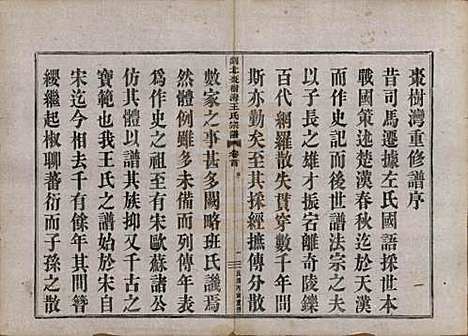 棗樹灣重修譜序
昔司馬遷據左氏國語採世本
戰國策述楚漢春秋迄於天漢
而作史記而後世譜法宗之夫
以子長之雄才振宕離奇陵鑠
百代網羅散失貫穿數千年間
斯亦勤矣至其採經摭傳分散
剡北棗樹灣王氏宗譜 卷首
數家之事甚多闕略班氏譏焉
然體例雖多未備而列傳年表
作史之祖至有宋歐蘇諸公各
體其體以譜其族抑又千古之
宋迄今相去千有餘年其間簪
纓繼起椒聊蕃衍而子孫之散